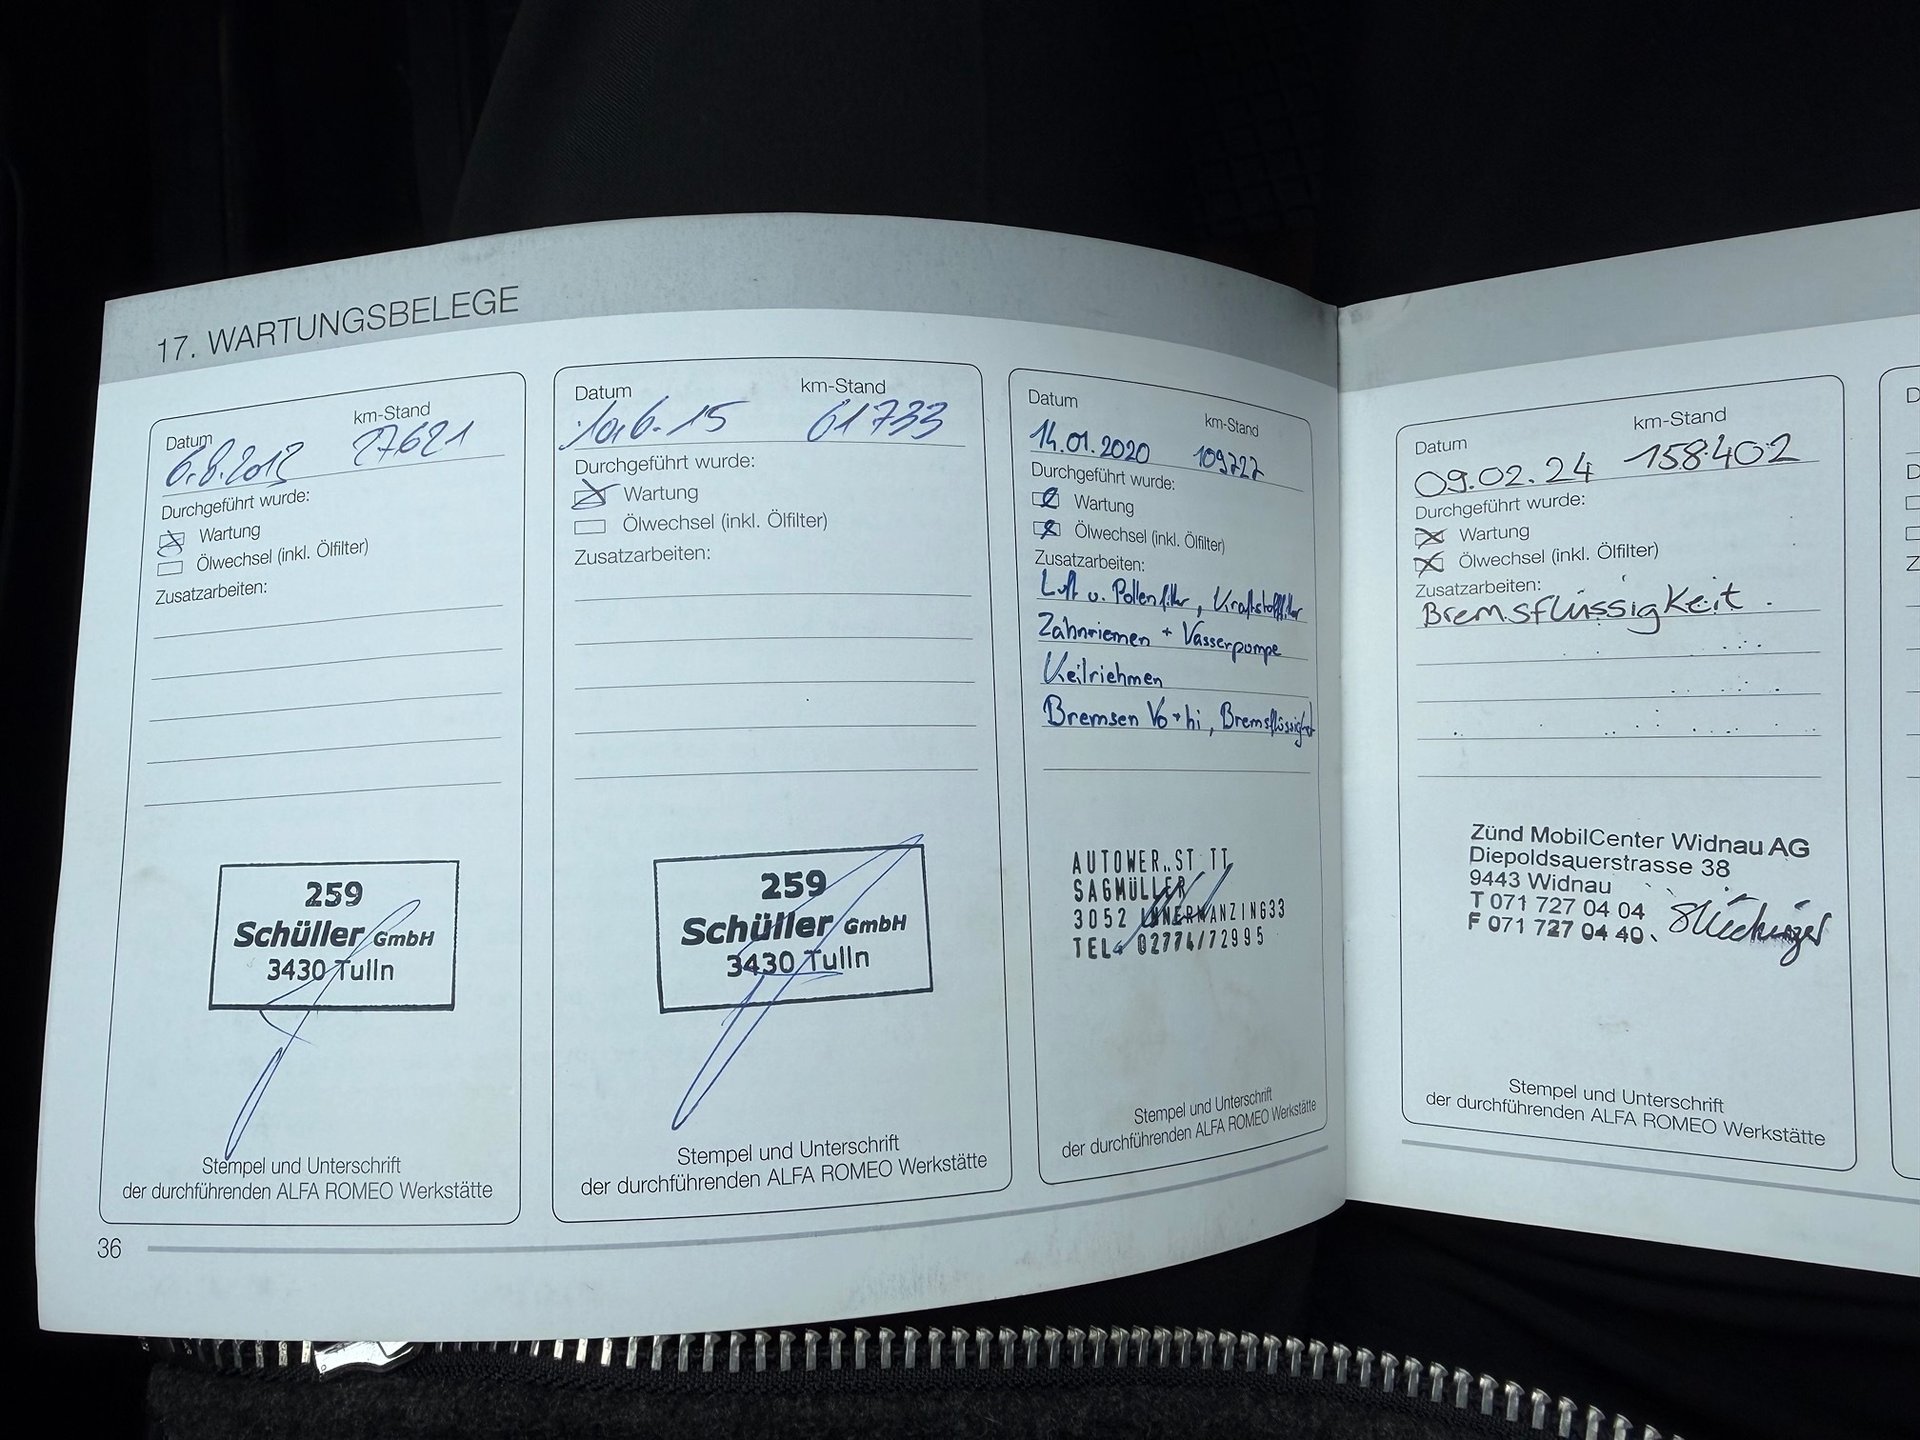 17. WARTUNGSBELEGE
Datum km-Stand
6.8.2013 27621
Durchgeführt wurde:
Wartung
Ölwechsel (inkl. Ölfilter)
Zusatzarbeiten:
259
Schüller GmbH
3430 Tulln
Stempel und Unterschrift
der durchführenden ALFA ROMEO Werkstätte
36
Datum km-Stand
10.6.15 61733
Durchgeführt wurde:
Wartung
Ölwechsel (inkl. Ölfilter)
Zusatzarbeiten:
259
Schüller GmbH
3430 Tulln
Stempel und Unterschrift
der durchführenden ALFA ROMEO Werkstätte
Datum km-Stand
14.01.2020 109727
Durchgeführt wurde:
Wartung
Ölwechsel (inkl. Ölfilter)
Zusatzarbeiten:
Luft u. Pollenfilter, Kraftstofffilter
Zahnriemen + Wasserpumpe
Keilriehmen
Bremsen Vo + hi, Bremsflüssigkeit
AUTOWER..ST TT
SAGMÜLLER
3052 INNERMANZING33
TEL. 02774/72995
Stempel und Unterschrift
der durchführenden ALFA ROMEO Werkstätte
Datum km-Stand
09.02.24 158.402
Durchgeführt wurde:
Wartung
Ölwechsel (inkl. Ölfilter)
Zusatzarbeiten:
Bremsflüssigkeit.
Zünd MobilCenter Widnau AG
Diepoldsauerstrasse 38
9443 Widnau
T 071 727 04 04
F 071 727 04 40
Stempel und Unterschrift
der durchführenden ALFA ROMEO Werkstätte